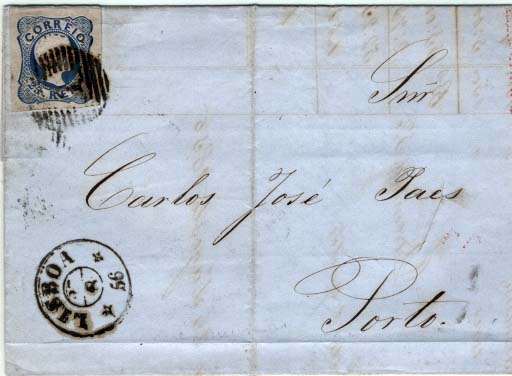 CORREIO
REIS
Snr
Carlos José Paes
Porto.
LISBOA
56